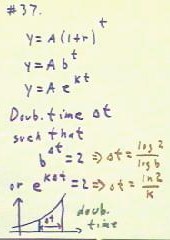 #37.
y = A(1+r)^t
y = A b^t
y = A e^{kt}
Doub. time Δt
such that
b^{Δt} = 2 ⇒ Δt = log 2 / log b
or e^{kΔt} = 2 ⇒ Δt = ln 2 / k
Δt doub.
time